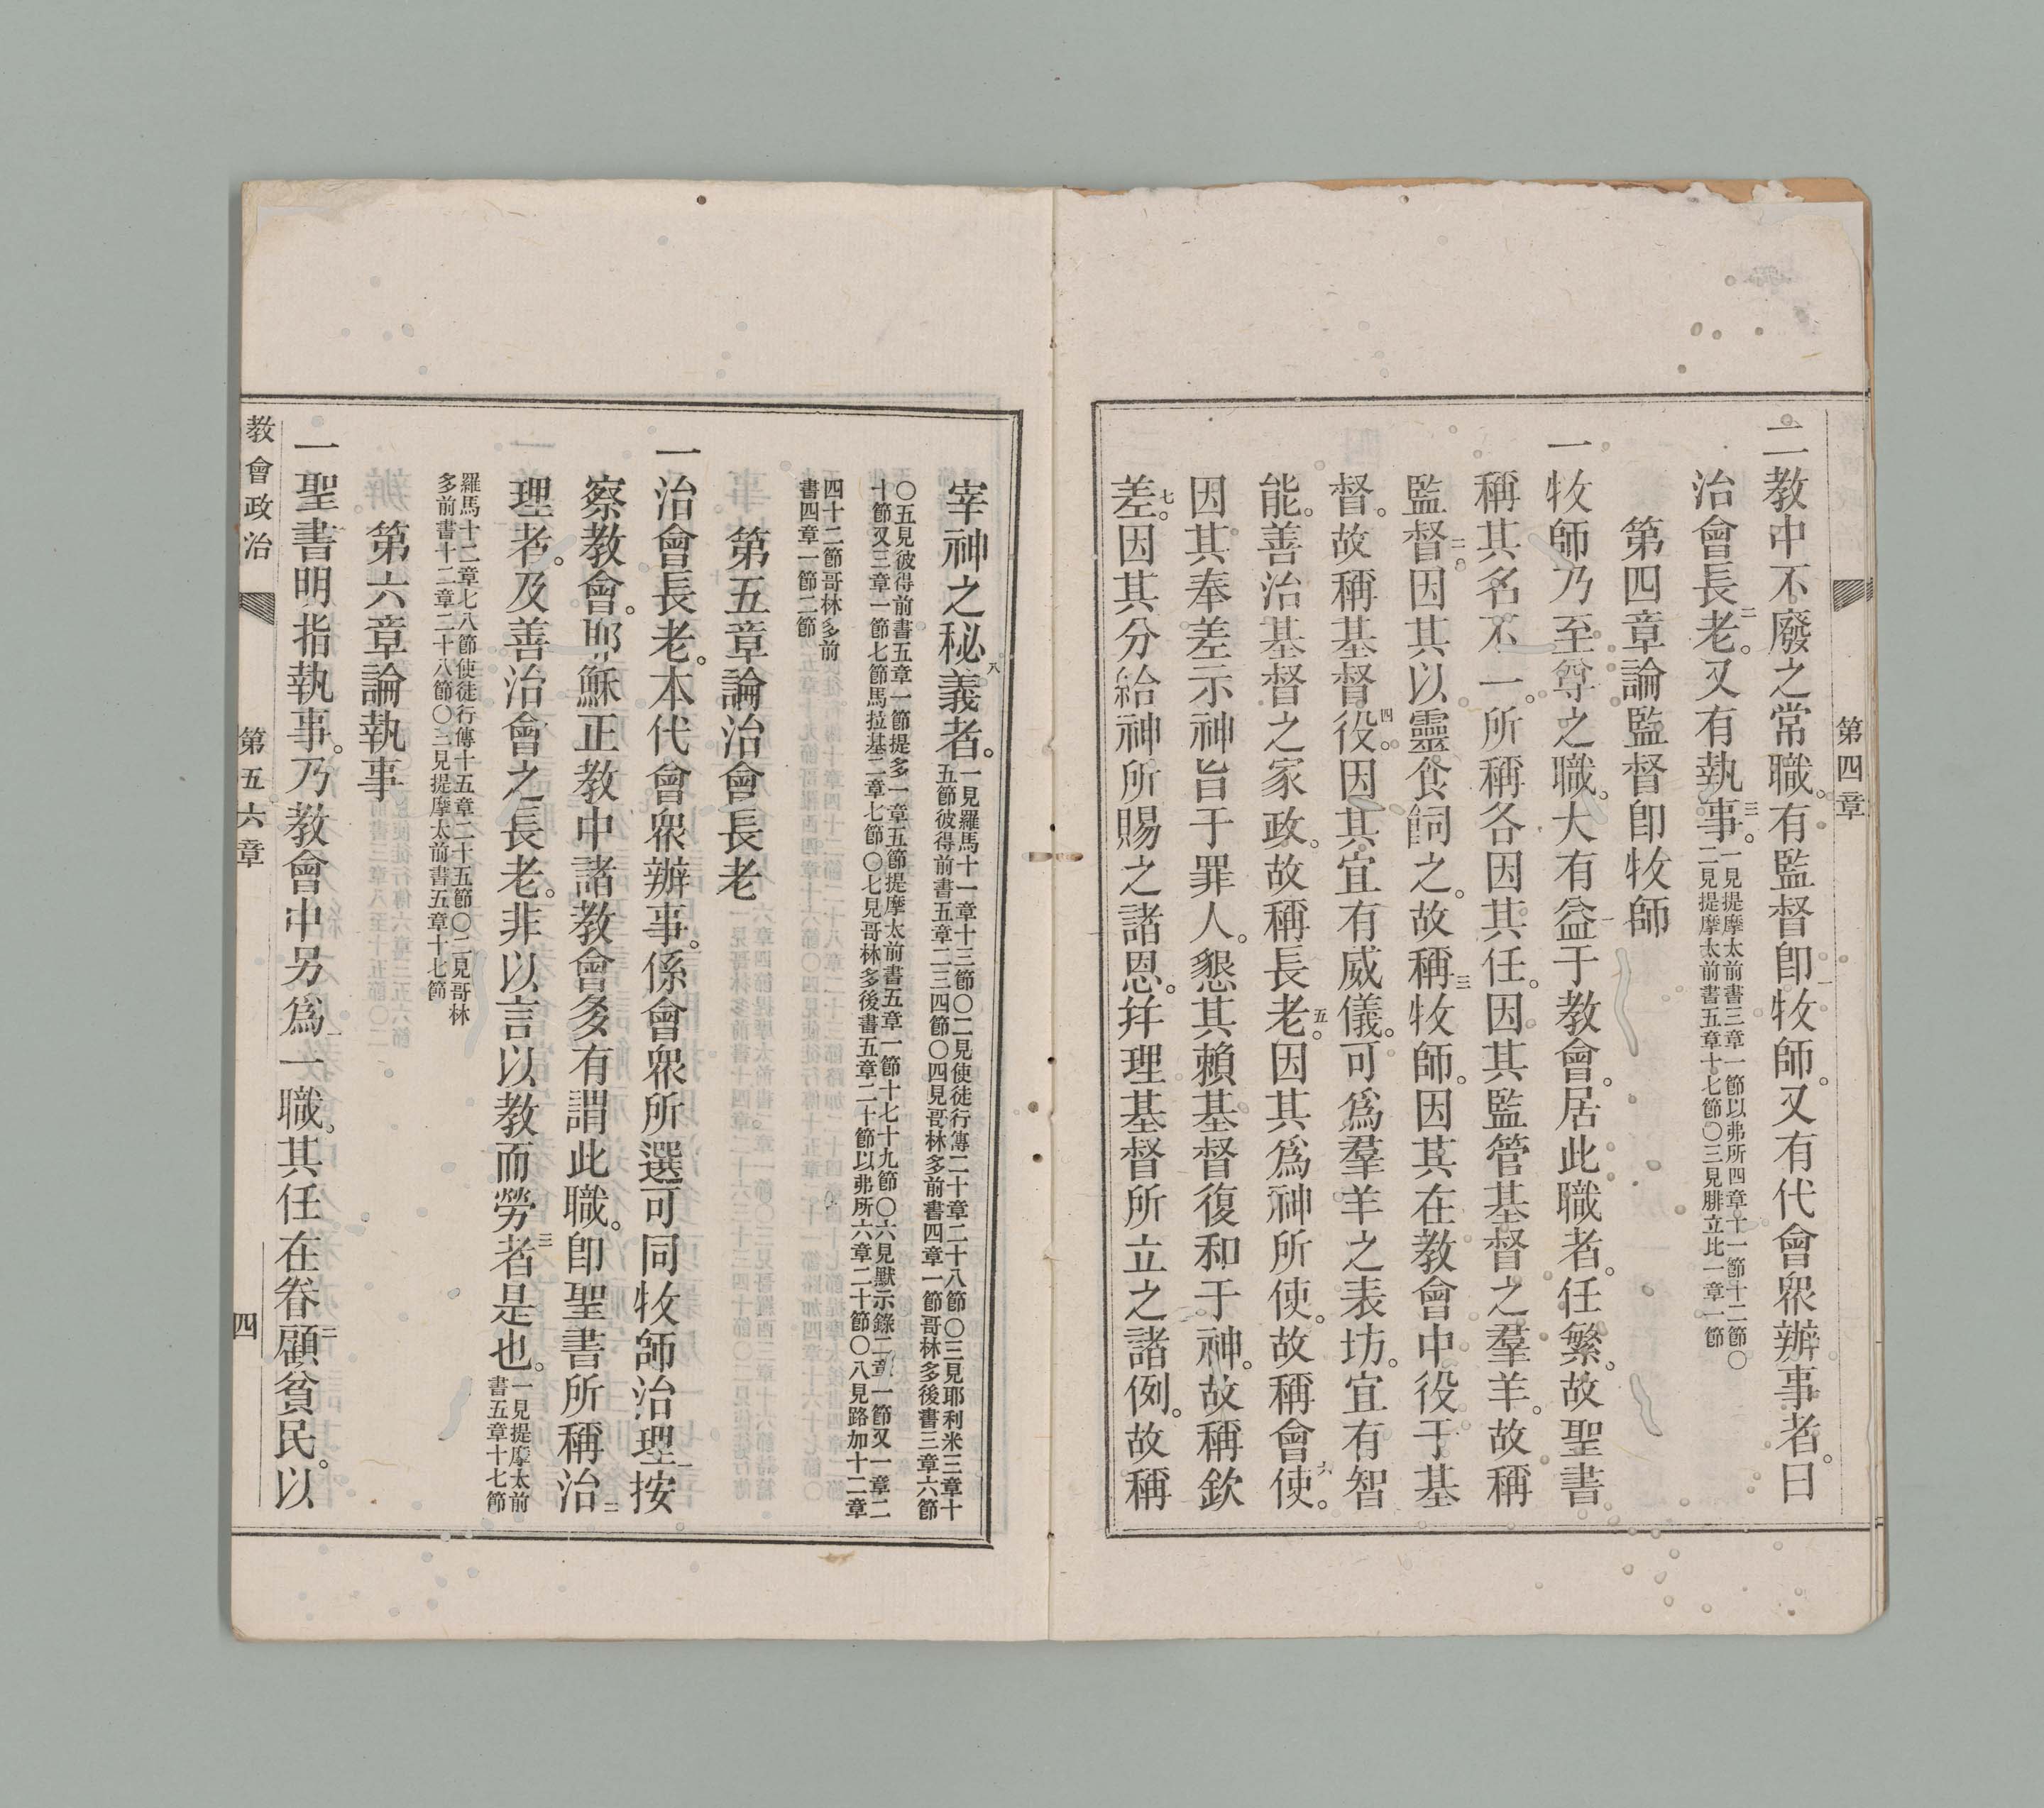 第四章
二教中不廢之常職。有監督卽牧師。一又有代會衆辦事者。曰
治會長老。二又有執事。三一見提摩太前書三章一節以弗所四章十一節十二節〇
二見提摩太前書五章十七節〇三見腓立比一章一節
第四章論監督卽牧師
一牧師乃至尊之職。大有益于教會。居此職者。任繁。故聖書
稱其名不一。所稱各因其任。因其監管基督之羣羊。故稱
監督。二因其以靈食飼之。故稱牧師。三因其在教會中役于基
督。故稱基督役。四因其宜有威儀。可爲羣羊之表坊。宜有智
能。善治基督之家政。故稱長老。五因其爲神所使。故稱會使。六
因其奉差示神旨于罪人。懇其賴基督復和于神。故稱欽
差。七因其分給神所賜之諸恩。幷理基督所立之諸例。故稱
宰神之秘義者。八一見羅馬十一章十三節〇二見使徒行傳二十章二十八節〇三見耶利米三章十
五節彼得前書五章二三四節〇四見哥林多前書四章一節哥林多後書三章六節
〇五見彼得前書五章一節提多一章五節提摩太前書五章一節十七十九節〇六見默示錄二章一節又一章二
十節又三章一節七節馬拉基二章七節〇七見哥林多後書五章二十節以弗所六章二十節〇八見路加十二章
四十二節哥林多前
書四章一節二節
第五章論治會長老
一治會長老。本代會衆辦事。係會衆所選。可同牧師治理。一按
察教會。耶穌正教中諸教會多有謂此職。卽聖書所稱治二
理者。及善治會之長老。非以言以教而勞者是也。三一見提摩太前
書五章十七節
羅馬十二章七八節使徒行傳十五章二十五節〇二見哥林
多前書十二章二十八節〇三見提摩太前書五章十七節
第六章論執事
一聖書明指執事。乃教會中另爲一一職。其任在眷顧二貧民。以
教會政治
第五六章
四